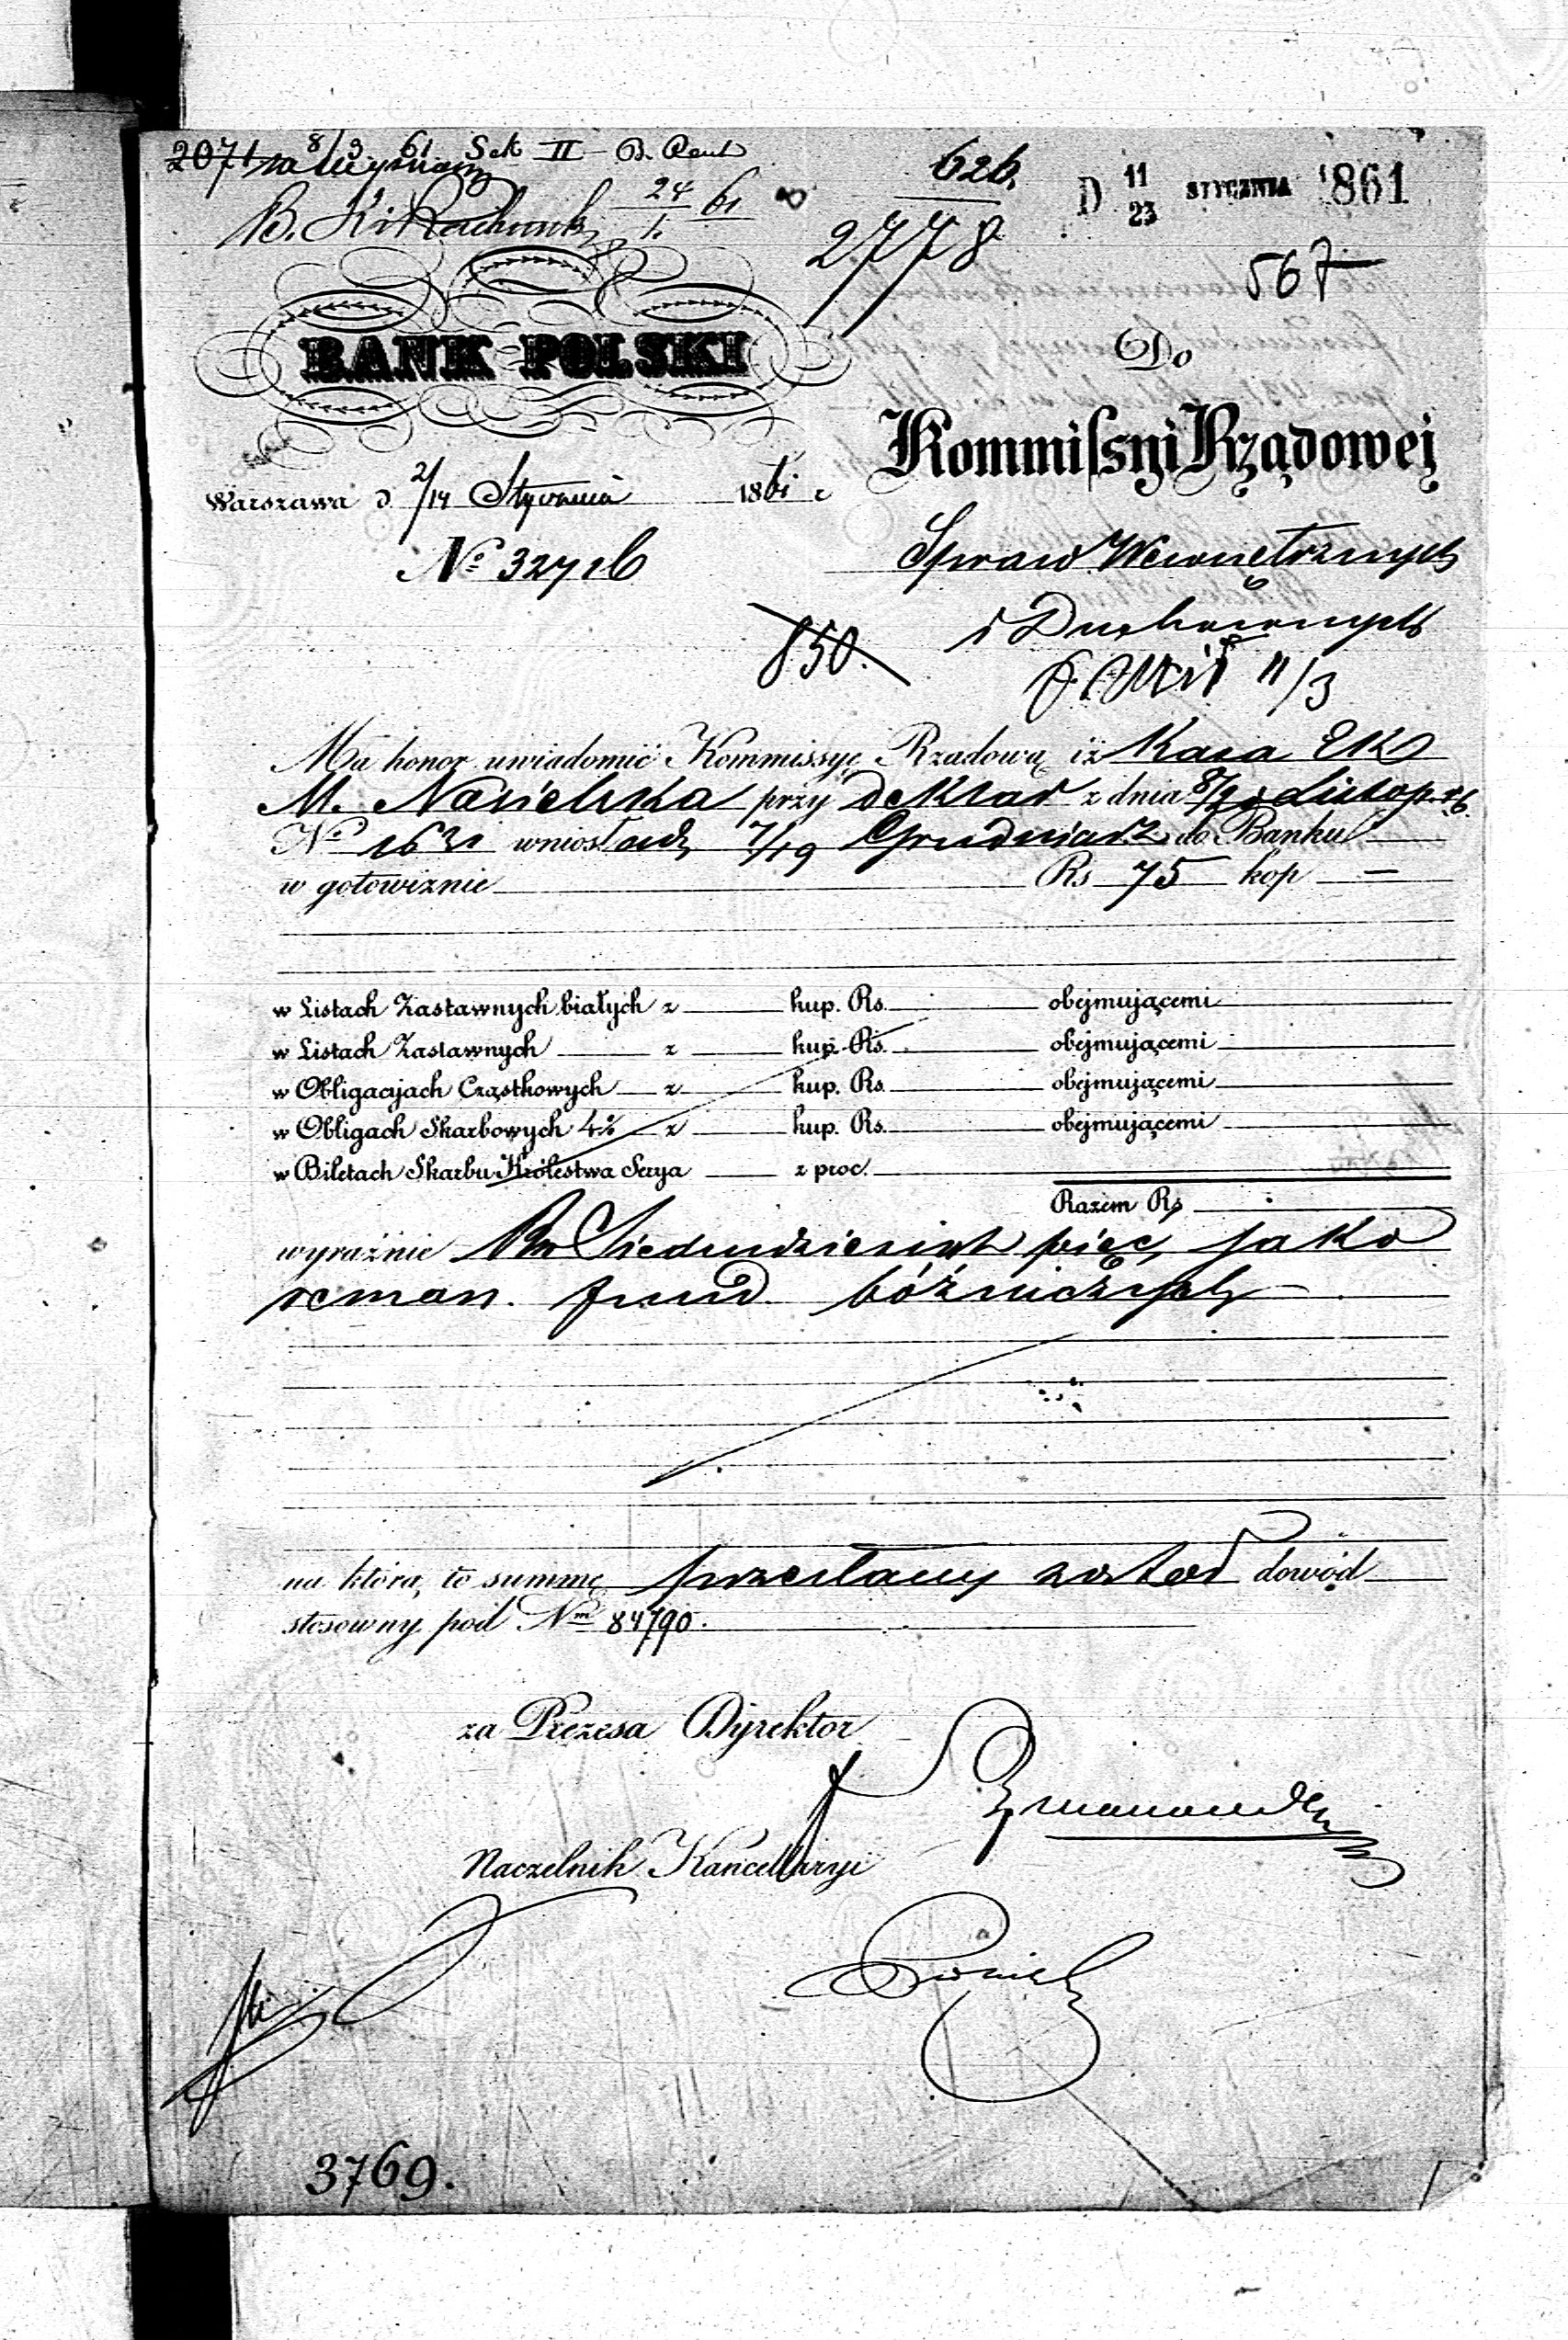 2071 8/3 61 Sek II B.
B. 24/1 61
626.
2778
D 11/23 STYCZNIA 1861
567
BANK POLSKI
Do
Kommissyi Rządowej
Warszawa d. 2/14 Stycznia 1861 r
No 32716
Spraw Wewnętrznych
i Duchownych
850.
11/3
Ma honor uwiadomić Kommissyę Rządową iż Kasa Ek
M. Nasielska przy deklar z dnia 8/20 Listop. r.b.
No 1631 wniosła d. 7/19 Grudnia r z do Banku
w gotowiznie Rs 75 kop —
w Listach Zastawnych białych z kup. Rs. obejmującemi
w Listach Zastawnych z kup. Rs. obejmującemi
w Obligacyjach Cząstkowych z kup. Rs. obejmującemi
w Obligach Skarbowych 4% z kup. Rs. obejmującemi
w Biletach Skarbu Królestwa Serya z proc.
Razem Rs
wyraźnie Rs Siedmdziesiąt pięć jako
reman. fund. bóżniczych
na którą to summę przesłany został dowód
stosowny pod Nm 84790.
za Prezesa Dyrektor
Naczelnik Kancellaryi
3769.